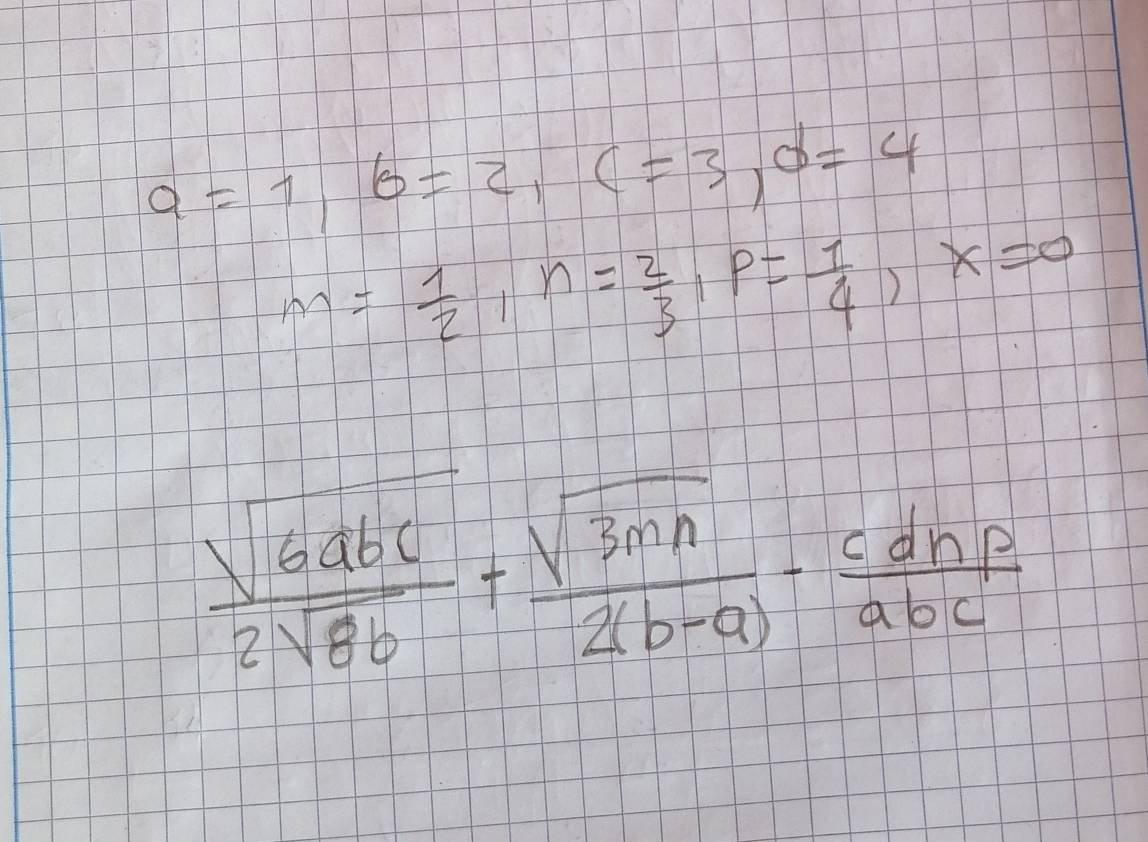 a = 1, b = 2, c = 3, d = 4
m = 1/2, n = 2/3, p = 1/4, x = 0
√(6abc) / 2√(8b) + √(3mn) / 2(b-a) - cdnp / abc